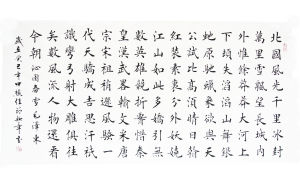 北國風光千里冰封
萬里雪飄望長城内
外惟餘莽莽大河上
下頓失滔滔山舞銀
蛇原馳蠟象欲與天
公試比高須晴日看
紅裝素裹分外妖嬈
江山如此多嬌引無
數英雄競折腰惜秦
皇漢武略輸文采唐
宗宋祖稍遜風騷一
代天驕成吉思汗祇
識彎弓射大雕俱往
矣數風流人物還看
今朝 沁園春雪毛澤東
歲在癸巳年